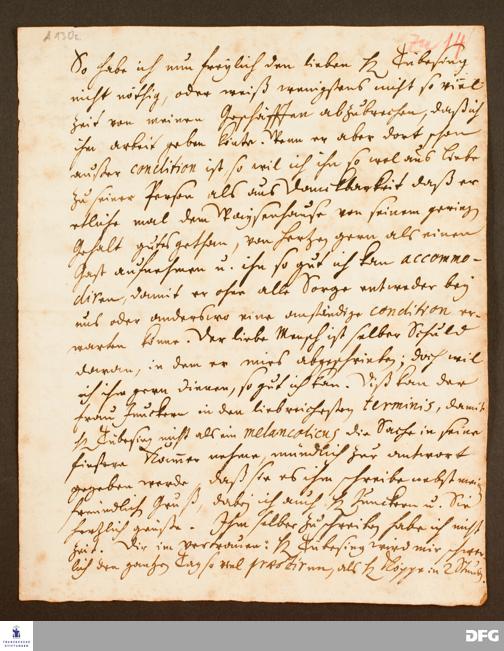 A 130c
Zu 14
So habe ich nun freylich den lieben H Tubesing
nicht nöthig, oder weiß wenigstens nicht so viel
Zeit von meinen Geschäfften abzubrechen, daß ich
ihm arbeit geben könte. Wenn er aber dort schon
außer condition ist so wil ich ihn so wol aus Liebe
zu seiner Person als aus Danckbarkeit daß er
etliche mal dem Waysenhause von seinem geringen
Gehalt guts gethan, von Hertzen gern als einen
Gast aufnehmen u. ihn so gut ich kan accommo-
diren, damit er ohne alle Sorge entweder bey
uns oder anderswo eine anständige condition er-
warten könne. Der liebe Mensch ist selber Schuld
daran, in dem er mirs abgeschrieben; doch wil
ich ihm gern dienen, so gut ich kan. Diß kan der
Frau in den liebreichsten terminis, damit
H Tubesing nicht als ein melancolicus die Sache in seine
finstere Kammer nehme, mündlich zur antwort
gegeben werde, daß sie es ihm schreibe nebst mein
freundlich Gruß dabey ich auch H u. Sie
hertzlich grüße. Ihm selber zu schreiben habe ich nicht
Zeit. Dir im vertrauen: H Tubesing wird mir schwer-
lich den gantzen Tag so viel præstiren, als H Köppe in 2 Stunden.
FRANCKESCHE STIFTUNGEN
DFG